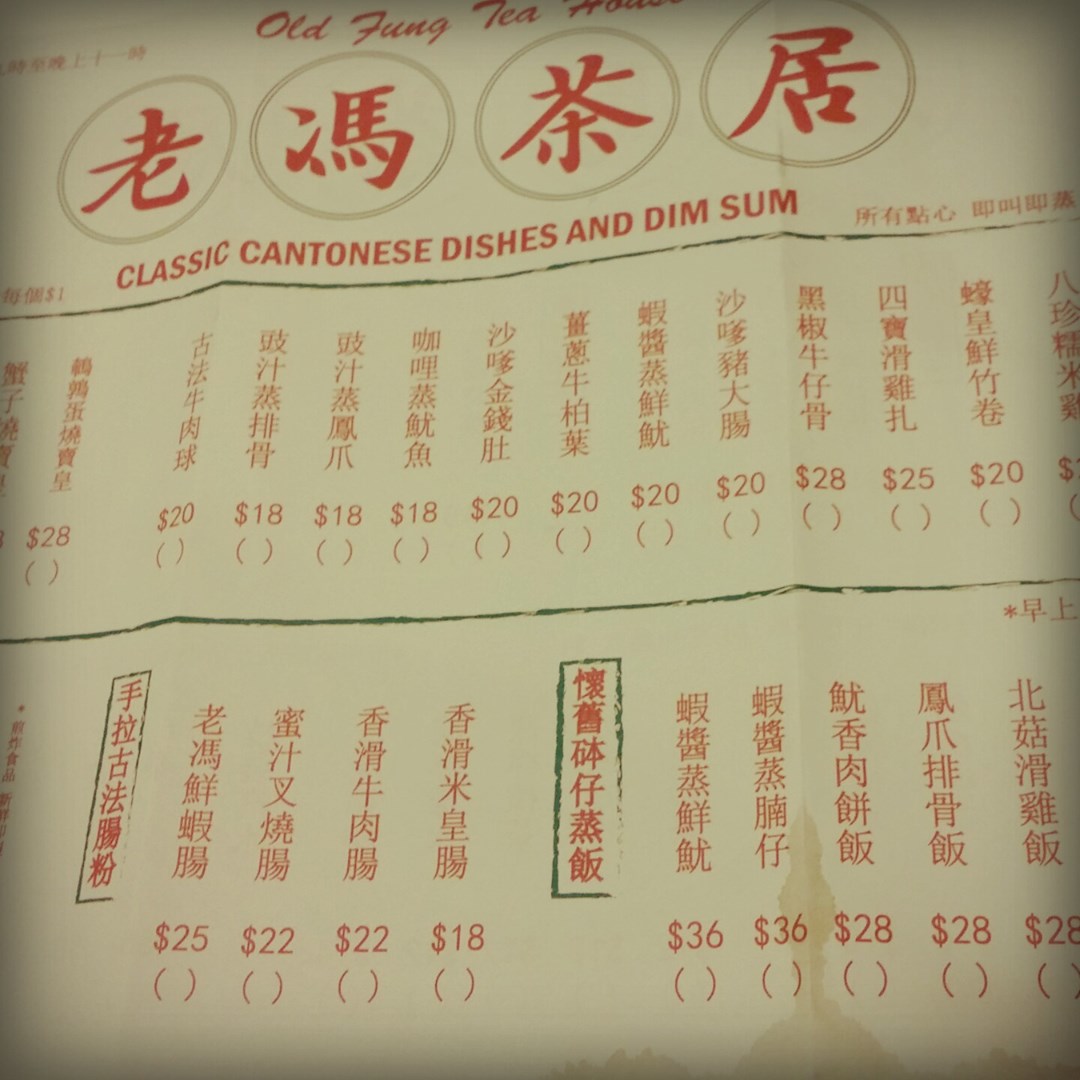 Old Fung Tea House
時至晚上十一時
老馮茶居
CLASSIC CANTONESE DISHES AND DIM SUM
所有點心 即叫即蒸
每個$1
八珍糯米雞
蠔皇鮮竹卷
$20
( )
四寶滑雞扎
$25
( )
黑椒牛仔骨
$28
( )
沙嗲豬大腸
$20
( )
蝦醬蒸鮮魷
$20
( )
薑蔥牛柏葉
$20
( )
沙嗲金錢肚
$20
( )
咖哩蒸魷魚
$18
( )
豉汁蒸鳳爪
$18
( )
豉汁蒸排骨
$18
( )
古法牛肉球
$20
( )
鵪鶉蛋燒賣皇
$28
( )
蟹子燒賣皇
*早上
北菇滑雞飯
$28
( )
鳳爪排骨飯
$28
( )
魷香肉餅飯
$28
( )
蝦醬蒸腩仔
$36
( )
蝦醬蒸鮮魷
$36
( )
懷舊砵仔蒸飯
香滑米皇腸
$18
( )
香滑牛肉腸
$22
( )
蜜汁叉燒腸
$22
( )
老馮鮮蝦腸
$25
( )
手拉古法腸粉
*煎炸食品